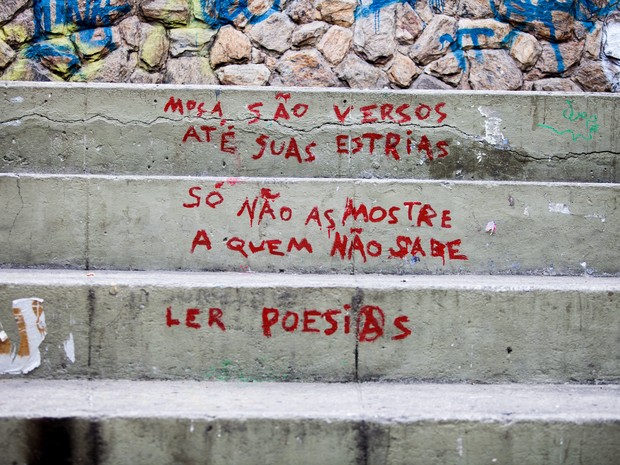 MOÇA, SÃO VERSOS
ATÉ SUAS ESTRIAS
SÓ NÃO AS MOSTRE
A QUEM NÃO SABE
LER POESIAS